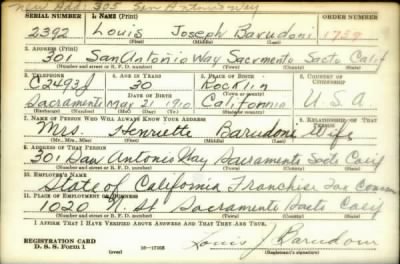 New Add: 305 San Antonio Way
SERIAL NUMBER 1. NAME (Print) ORDER NUMBER
2392 Louis Joseph Barudoni 1739
(First) (Middle) (Last)
2. ADDRESS (Print)
301 San Antonio Way Sacramento Sacto Calif
(Number and street or R. F. D. number) (Town) (County) (State)
3. TELEPHONE 4. AGE IN YEARS 5. PLACE OF BIRTH 6. COUNTRY OF CITIZENSHIP
C2493J 30 Rocklin
DATE OF BIRTH (Town or county)
Sacramento May 21 1910 California U.S.A
(Exchange) (Number) (Mo.) (Day) (Yr.) (State or country)
7. NAME OF PERSON WHO WILL ALWAYS KNOW YOUR ADDRESS 8. RELATIONSHIP OF THAT PERSON
Mrs. Henriette Barudoni Wife
(Mr., Mrs., Miss) (First) (Middle) (Last)
9. ADDRESS OF THAT PERSON
301 San Antonio Way Sacramento Sacto Calif
(Number and street or R. F. D. number) (Town) (County) (State)
10. EMPLOYER'S NAME
State of California Franchise Tax
11. PLACE OF EMPLOYMENT OR BUSINESS
1020 N. St Sacramento Sacto Calif
(Number and street or R. F. D. number) (Town) (County) (State)
I AFFIRM THAT I HAVE VERIFIED ABOVE ANSWERS AND THAT THEY ARE TRUE.
REGISTRATION CARD
D. S. S. Form 1 (over) 16—17105 Louis J Barudoni
(Registrant's signature)